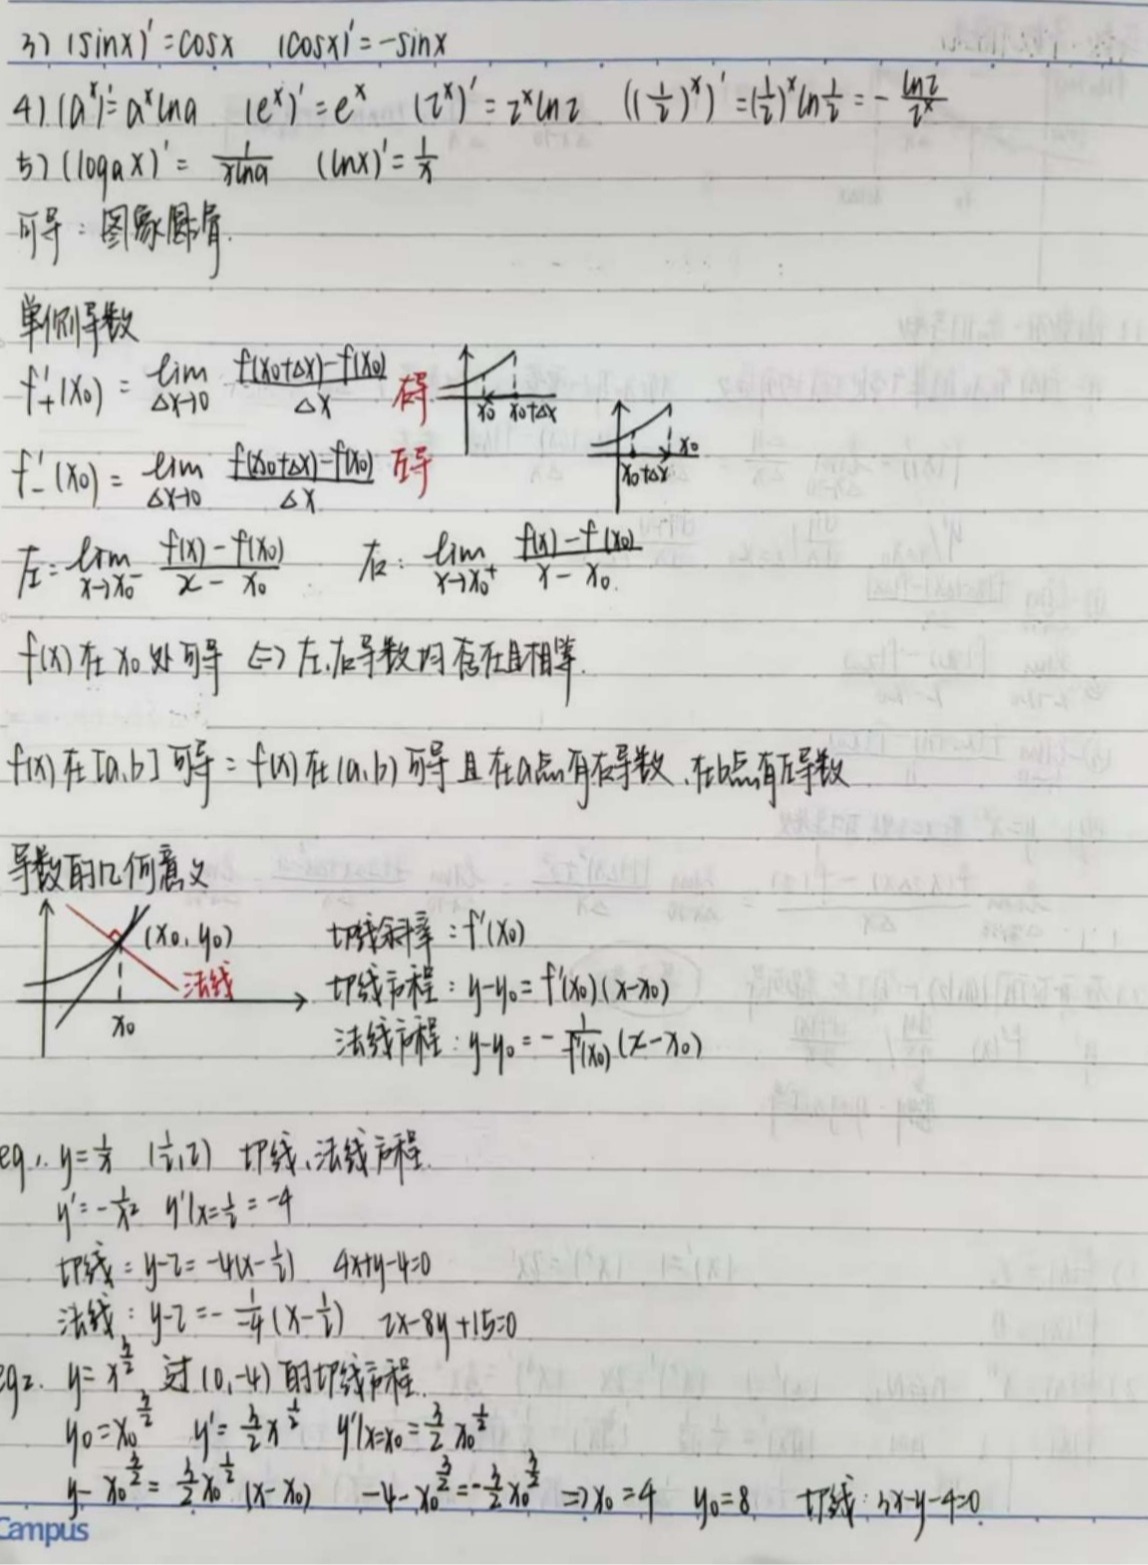 3) (sinx)'=cosx (cosx)'=-sinx
4) (aˣ)'=aˣlna (eˣ)'=eˣ (2ˣ)'=2ˣln2 ((1/2)ˣ)'=(1/2)ˣln1/2=-ln2/2ˣ
5) (logₐx)'=1/xlna (lnx)'=1/x
可导:图象圆滑.
单侧导数
f'₊(x₀)=lim Δx→0 f(x₀+Δx)-f(x₀)/Δx 右导 x₀ x₀+Δx
f'₋(x₀)=lim Δx→0 f(x₀+Δx)-f(x₀)/Δx 左导 x₀+Δx x₀
左:lim x→x₀⁻ f(x)-f(x₀)/x-x₀ 右:lim x→x₀⁺ f(x)-f(x₀)/x-x₀.
f(x)在x₀处可导 ⇔ 左、右导数均存在且相等.
f(x)在[a,b]可导=f(x)在(a,b)可导且在a点有右导数、在b点有左导数
导数的几何意义
(x₀,y₀) 法线 x₀
切线斜率:f'(x₀)
切线方程:y-y₀=f'(x₀)(x-x₀)
法线方程:y-y₀=-1/f'(x₀)(x-x₀)
eg1. y=1/x (1/2,2) 切线、法线方程.
y'=-1/x² y'|x=1/2=-4
切线:y-2=-4(x-1/2) 4x+y-4=0
法线:y-2=-1/-4(x-1/2) 2x-8y+15=0
eg2. y=x^3/2 过(0,-4)的切线方程.
y₀=x₀^3/2 y'=3/2x^1/2 y'|x=x₀=3/2x₀^1/2
y-x₀^3/2=3/2x₀^1/2(x-x₀) -4-x₀^3/2=-3/2x₀^3/2 ⇒x₀=4 y₀=8 切线:3x-y-4=0
Campus